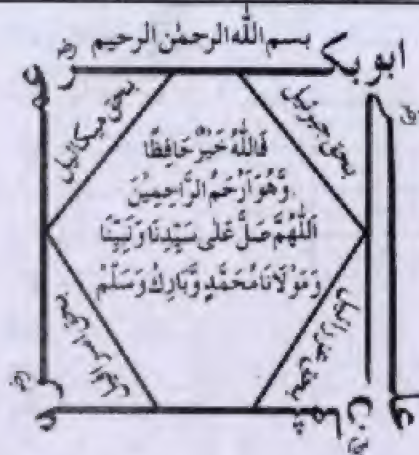 بسم اللّٰہ الرحمٰن الرحیم
ابوبکر
عمر
بحق جبرئیل
بحق میکائیل
فَاللّٰهُ خَیْرٌ حَافِظًا
وَّهُوَ اَرْحَمُ الرَّاحِمِیْنَ
اَللّٰهُمَّ صَلِّ عَلٰی سَیِّدِنَا وَنَبِیِّنَا
وَمَوْلَانَا مُحَمَّدٍ وَّبَارِكْ وَسَلِّمْ
بحق عزرائیل
بحق اسرافیل
عثمان